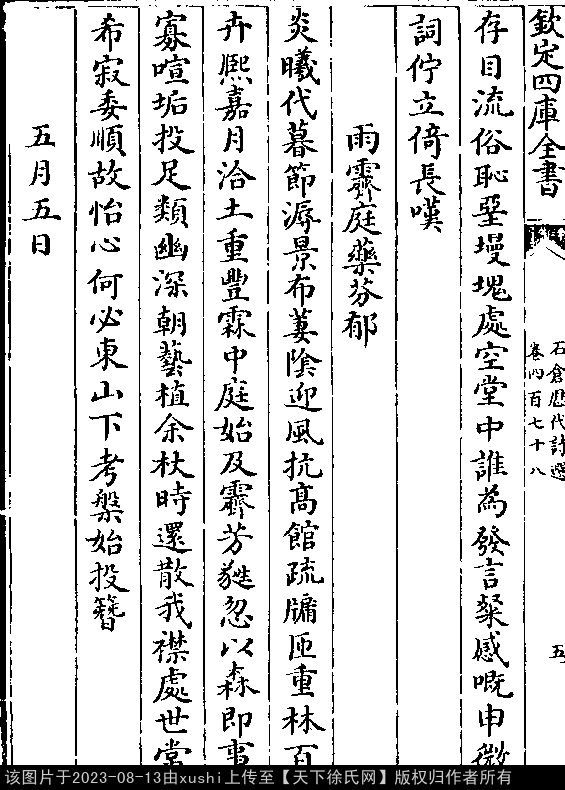 欽定四庫全書
石倉歷代詩選
卷四百七十八
五
存目流俗恥堊墁塊處空堂中誰為發言粲感嘅申微
詞佇立倚長嘆
雨霽庭藥芬郁
炎曦代暮節溽景布蔞陰迎風抗高館疏牗匝重林百
卉熙嘉月洽土重豐霖中庭始及霽芳蕤忽以森即事
寡喧垢投足類幽深朝藝植余杖時還散我襟處世常
希寂委順故怡心何必東山下考槃始投簪
五月五日
该图片于2023-08-13由xushi上传至【天下徐氏网】版权归作者所有